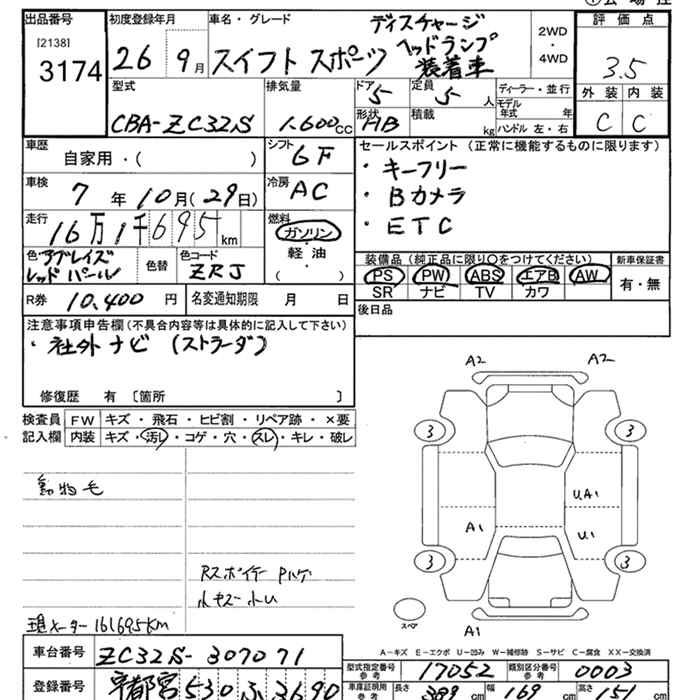 出品番号
[2138]
3174
初度登録年月
26 9月
車名・グレード
スイフト スポーツ
ディスチャージ
ヘッドランプ
装着車
2WD
・
4WD
評価点
3.5
外装 内装
C C
型式
CBA-ZC32S
排気量
1.600cc
ドア
5
定員
5人
形状
HB
積載
kg
ディーラー・並行
モデル年式 年
ハンドル 左・右
車歴
自家用・( )
シフト
6F
車検
7年10月(29日)
冷房
AC
走行
16万1千695km
燃料
ガソリン
・
軽油
( )
色 アブレイズレッド パール
色替
色コード
ZRJ
R券 10,400円
名変通知期限 月 日
セールスポイント(正常に機能するものに限ります)
・キーフリー
・Bカメラ
・ETC
装備品(純正品に限り○をつけてください)
PS PW ABS エアB AW
SR ナビ TV カワ
新車保証書
有・無
後日品
注意事項申告欄(不具合内容等は具体的に記入して下さい)
・社外ナビ (ストラーダ)
修復歴 有〔箇所 〕
検査員
記入欄
FW キズ・飛石・ヒビ割・リペア跡・×要
内装 キズ・汚レ・コゲ・穴・スレ・キレ・破レ
動物毛
小キズ 小U
現メーター161695KM
A2 A2
3 3
U,A1
A1 U1
3 3
スペア
A1
A-キズ E-エクボ U-凹み W-補修跡 S-サビ C-腐食 XX-交換済
車台番号 ZC32S-307071
登録番号 宇都宮 530 ふ 3690
型式指定番号 参考 17052
類別区分番号 参考 0003
車庫証明用 参考
長さ 389cm 幅 169cm 高さ 151cm